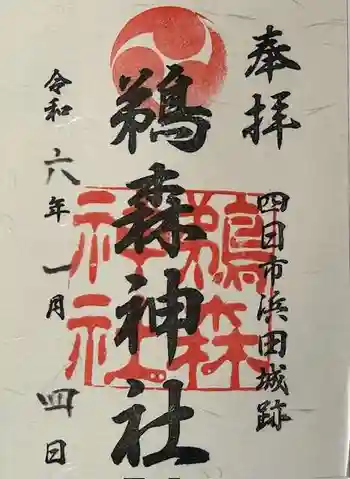 奉拝
四日市浜田城跡
鵜森神社
鵜森
神社
令和六年一月四日